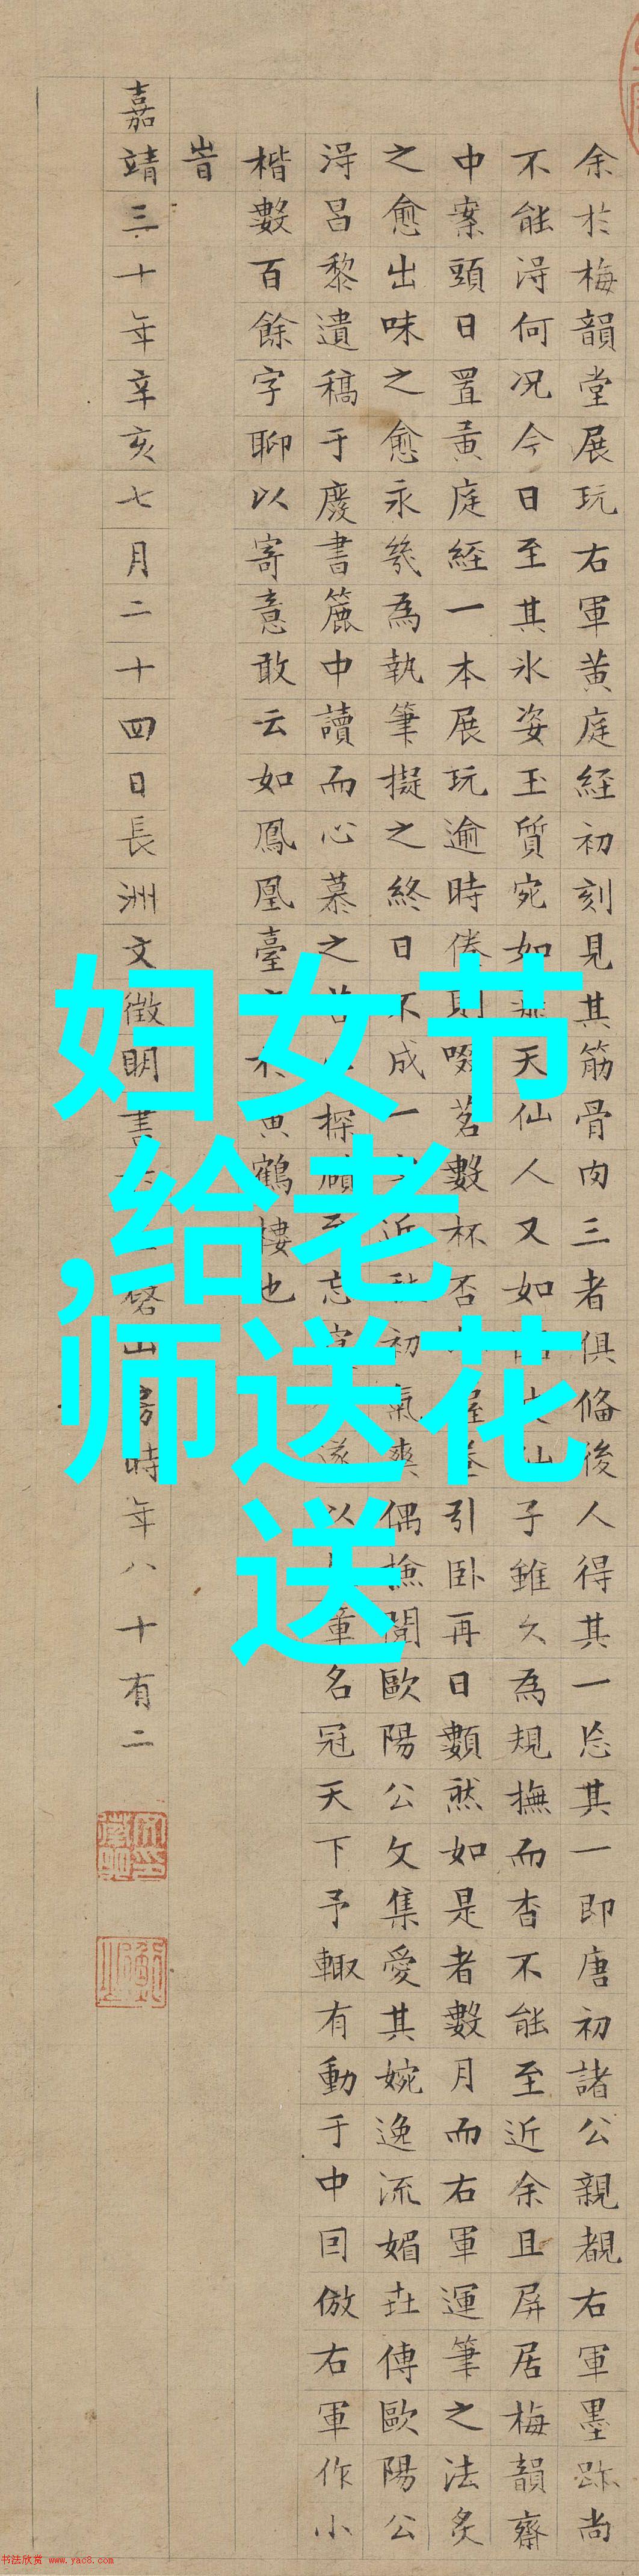 余於梅韻堂展玩右軍黄庭経初刻見其筋骨肉三者俱俻後人得其一忘其一即唐初諸公親覩右軍墨跡尚
不能淂何况今日至其氷姿玉質宛如天仙人又如子雖久為規撫而杳不能至近余且屏居梅韻齋
中案頭日置黄庭経一本展玩逾時倦則啜茗數杯否引卧再日顭然如是者數月而右軍運筆之法炙
之愈出味之愈永幾為執筆擬之終日不成一近初氣爽偶撿閲歐陽公文集愛其婉逸流媚因傳歐陽公
淂呂黎遺稿于廢書簏中讀而心慕之探賾至忘遂以章名冠天下予輙有動于中囙倣右軍作小
楷數百餘字聊以寄意敢云如鳳凰臺之黄鶴樓也
旹
嘉靖三十年辛亥七月二十四日長洲文徵明書山房時年八十有二
妇女节
,给老
师送花
送
书法欣赏 www.yac8.com